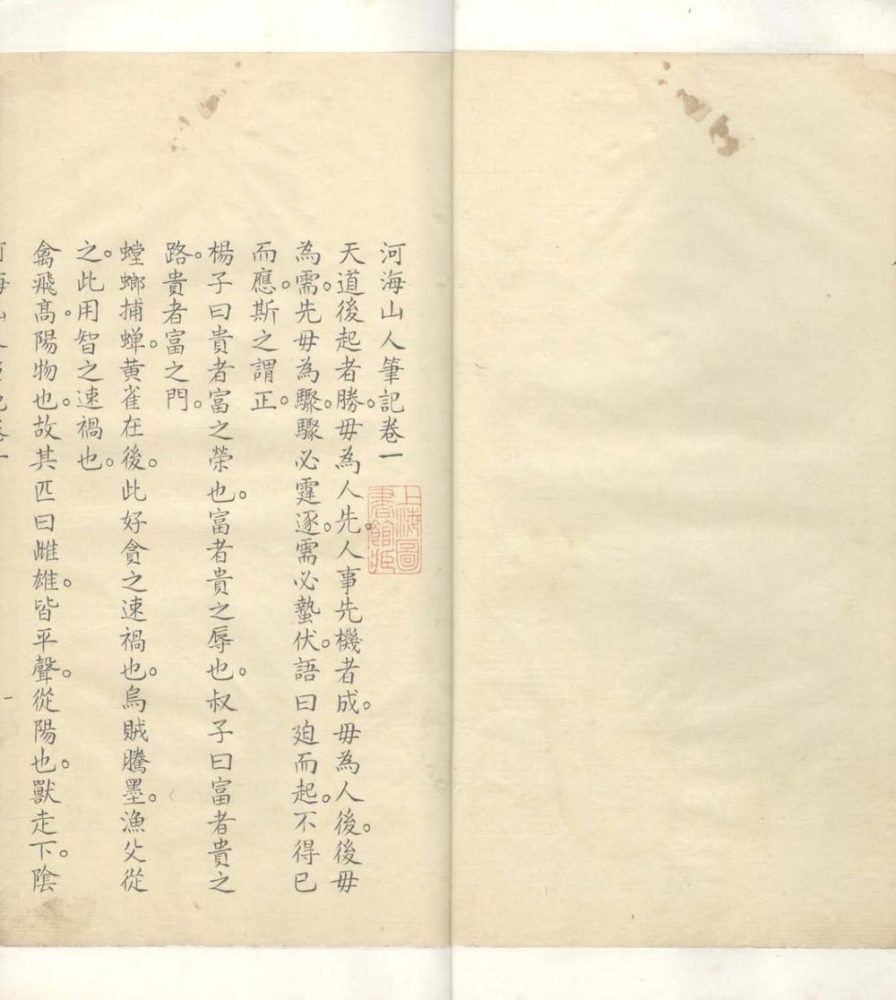 河海山人筆記卷一
天道後起者勝。毋為人先。人事先機者成。毋為人後。後毋
為需。先毋為驟。驟必霆逐。需必蟄伏。語曰廹而起。不得已
而應。斯之謂正。
楊子曰貴者富之榮也。富者貴之辱也。叔子曰富者貴之
路。貴者富之門。
螳螂捕蟬。黄雀在後。此好貪之速禍也。烏賊騰墨。漁父從
之。此用智之速禍也。
禽飛高。陽物也。故其匹曰雌雄。皆平聲。從陽也。獸走下。陰
上海圖書館藏